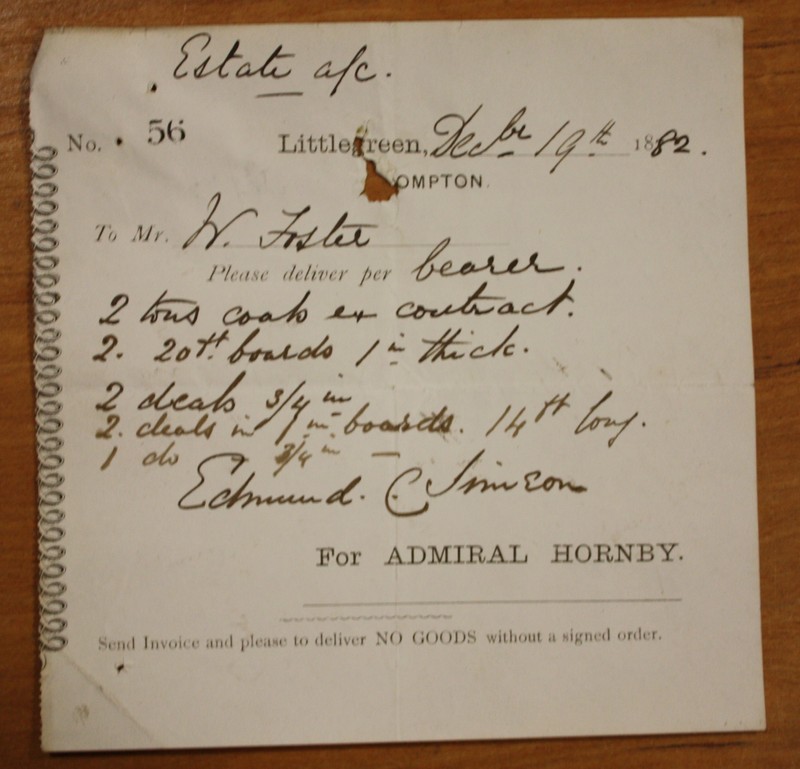 Estate a/c.
No. 56 Littlegreen, Decbr 19th 1882.
OMPTON.
To Mr. W. Foster
Please deliver per bearer.
2 tons coals ex contract.
2. 20ft boards 1 in thick.
2 deals 3/4 in
2. deals in 1 in boards. 14ft long.
1 do 3/4 in —
Edmund. C Simeon
For ADMIRAL HORNBY.
Send Invoice and please to deliver NO GOODS without a signed order.